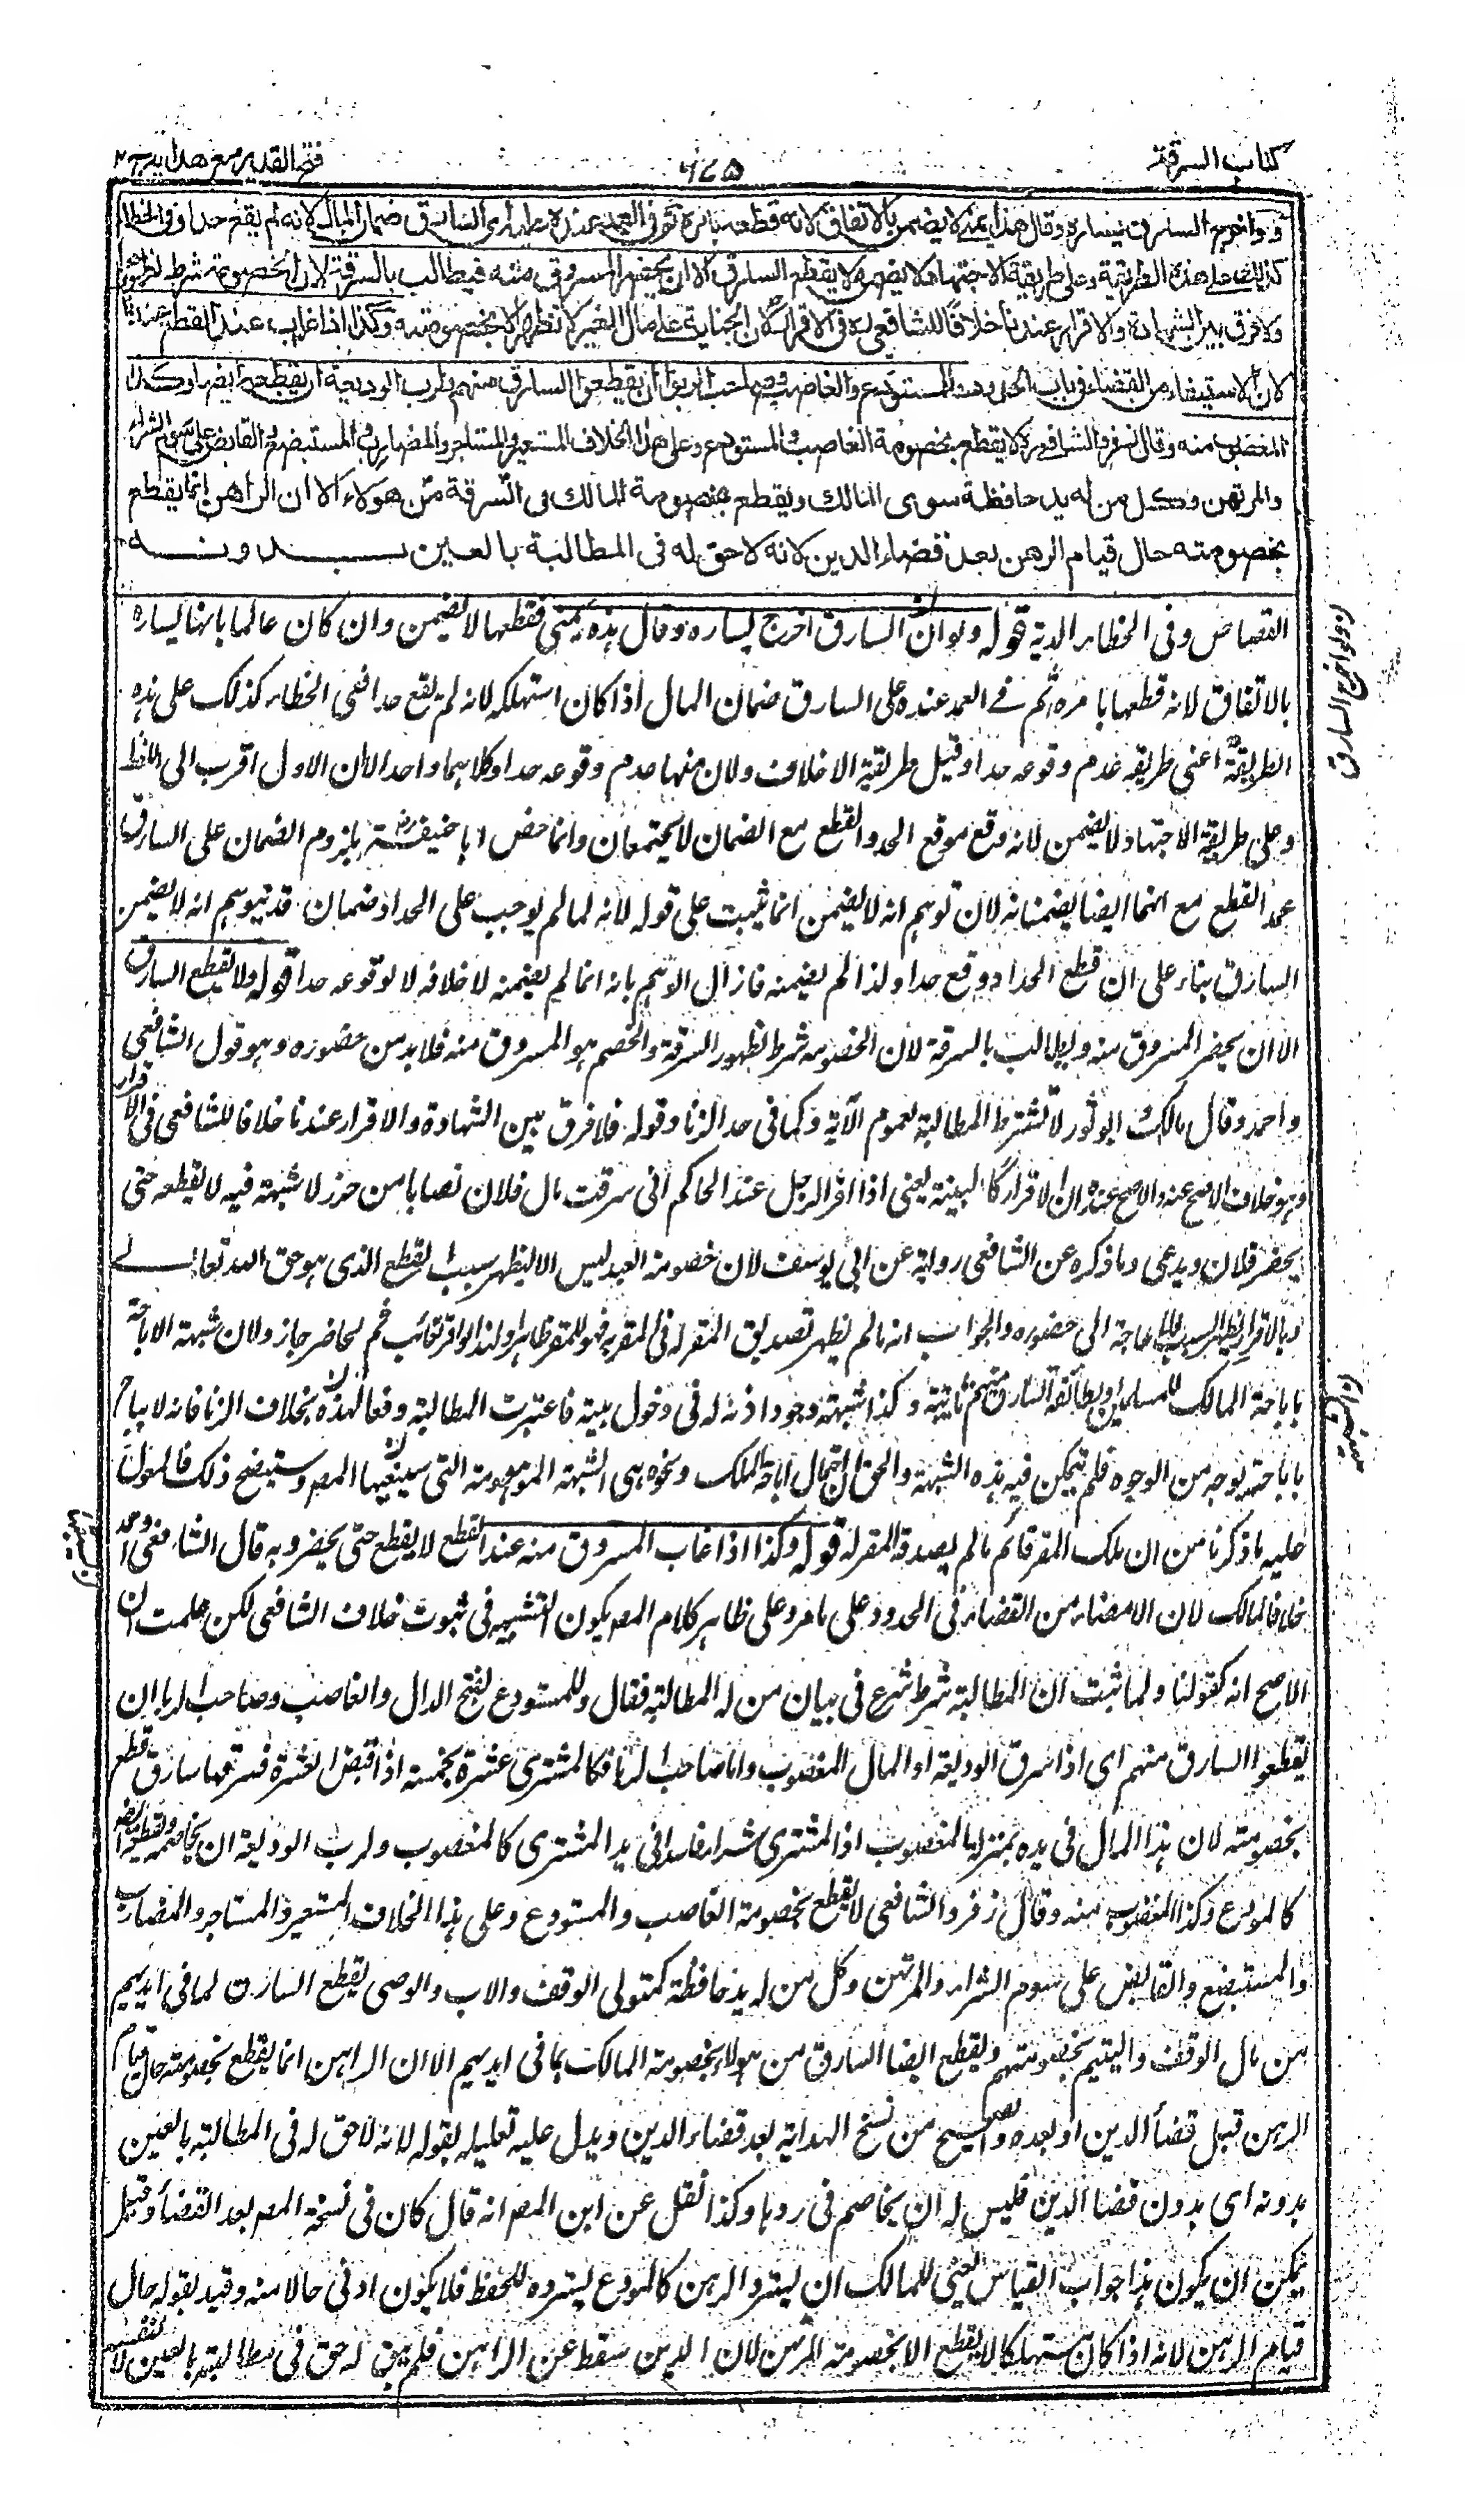 كتاب السرقة
٧٤٥
فتح القدير مع هدايه ج ٢
ولو اخرج السارق يساره وقال هذا يميني لا يضمن بالاتفاق لانه قطعه بامره ثم في العمد عنده عليه اي السارق ضمان المال لانه لم يقع حدا وفي الخطأ
كذلك على هذه الطريقة وعلى طريقة الاجتهاد لا يضمن ولا يقطع السارق الا ان يحضر المسروق منه فيطالب بالسرقة لان الخصومة شرط لظهورها
ولا فرق بين الشهادة والاقرار عندنا خلافا للشافعي في الاقرار لان الجناية على مال الغير لا تظهر الا بخصومته وكذا اذا غاب عند القطع عندنا
لان الاستيفاء من القضاء في باب الحدود وللمستودع والغاصب وصاحب الربوا ان يقطعوا السارق منهم ولرب الوديعة ان يقطعه ايضا وكذا
المغصوب منه وقال زفر والشافعي لا يقطع بخصومة الغاصب والمستودع وعلى هذا الخلاف المستعير والمستاجر والمضارب والمستبضع والقابض على سوم الشراء
والمرتهن وكل من له يد حافظة سوى المالك ويقطع بخصومة المالك في السرقة من هولاء الا ان الراهن انما يقطع
بخصومته حال قيام الرهن بعد قضاء الدين لانه لا حق له في المطالبة بالعين بدونه
القصاص وفي الخطاء الدية قوله ولو ان السارق اخرج يساره وقال هذه يميني فقطعها لا يضمن وان كان عالما بانها يساره
بالاتفاق لانه قطعها بامره ثم في العمد عنده على السارق ضمان المال اذا كان استهلكه لانه لم يقع حدا ففي الخطاء كذلك على هذه
الطريقة اعني طريقة عدم وقوعه حدا وقيل طريقة الاخلاف ولان منها عدم وقوعه حدا وكلاهما واحد الا ان الاول اقرب الى اللفظ
وعلى طريقة الاجتهاد لا يضمن لانه وقع موقع الحد والقطع مع الضمان لا يجتمعان وانما خص ابا حنيفة بلزوم الضمان على السارق
عمد القطع مع انهما ايضا يضمنانه لان توهم انه لا يضمن انما يثبت على قوله لانه لما لم يوجب على الحداد ضمان قد يتوهم انه لا يضمن
السارق بناء على ان قطع الحداد وقع حدا ولذا لم يضمنه فازال الوهم بانه انما لم يضمنه لاخلافه لا لوقوعه حدا قوله ولا يقطع السارق
الا ان يحضر المسروق منه ويطالب بالسرقة لان الخصومة شرط لظهور السرقة والخصم هو المسروق منه فلا بد من حضوره وهو قول الشافعي
واحمد وقال مالك وابو ثور لا تشترط المطالبة لعموم الآية وكما في حد الزنا وقوله فلا فرق بين الشهادة والاقرار عندنا خلافا للشافعي في الاقرار
وهو خلاف الاصح عنه والاصح عنده ان الاقرار كالبينة يعني اذا اقر الرجل عند الحاكم اني سرقت مال فلان نصابا من حرز لا شبهة فيه لا يقطعه حتى
يحضر فلان ويدعي وما ذكره عن الشافعي رواية عن ابي يوسف لان خصومة العبد ليس الا ليظهر سبب القطع الذي هو حق الله تعالى
وبالاقرار يظهر السبب فلا حاجة الى حضوره والجواب انه ما لم يظهر تصديق المقر له في المقر به فهو للمقر ظاهرا ولذا لو اقر لغائب ثم لحاضر جاز ولان شبهة الاباحة
باباحة المالك للمسلمين او لطائفة السارق منهم ثابتة وكذا شبهة وجود اذنه له في دخول بيته فاعتبرت المطالبة دفعا لهذه بخلاف الزنا فانه لا يباح
باباحة بوجه من الوجوه فلم يتمكن فيه هذه الشبهة والحق ان احتمال اباحة المالك ونحوه هي الشبهة الموهومة التي سينفيها المصر وسيتضح ذلك فالمعول
عليه ما ذكرنا من ان ملك المقر قائم ما لم يصدقه المقر له قوله وكذا اذا غاب المسروق منه عند القطع لا يقطع حتى يحضر وبه قال الشافعي واحمد
خلافا لمالك لان الامضاء من القضاء في الحدود على ما مر وعلى ظاهر كلام المصر يكون التشبيه في ثبوت خلاف الشافعي لكن علمت ان
الاصح انه كقولنا ولما ثبت ان المطالبة شرط شرع في بيان من له المطالبة فقال وللمستودع بفتح الدال والغاصب وصاحب الربا ان
يقطعوا السارق منهم اي اذا سرق الوديعة او المال المغصوب واما صاحب الربا فكالمشتري عشرة بخمسة اذا قبض العشرة فسرقها سارق قطع
بخصومته لان هذا المال في يده بمنزلة المغصوب اذ المشترى شراء فاسدا في يد المشتري كالمغصوب ولرب الوديعة ان يخاصمه ويقطعه ايضا
كالمودع وكذا المغصوب منه وقال زفر والشافعي لا يقطع بخصومة الغاصب والمستودع وعلى هذا الخلاف المستعير والمستاجر والمضارب
والمستبضع والقابض على سوم الشراء والمرتهن وكل من له يد حافظة كمتولي الوقف والاب والوصي يقطع السارق لما في ايديهم
من مال الوقف واليتيم بخصومتهم ويقطع ايضا السارق من هولاء بخصومة المالك بما في ايديهم الا ان الراهن انما يقطع بخصومته حال قيام
الرهن قبل قضاء الدين او بعده والصحيح من نسخ الهداية بعد قضاء الدين ويدل عليه تعليله بقوله لانه لا حق له في المطالبة بالعين
بدونه اي بدون قضاء الدين فليس له ان يخاصم في ردها وكذا نقل عن ابن المصر انه قال كان في نسخة المصر بعد القضاء وقيل
يمكن ان يكون هذا جواب القياس يعني للمالك ان يسترد الرهن كالمودع يسترده للحفظ فلا يكون ادنى حالا منه وقيد بقوله حال
قيام الرهن لانه اذا كان مستهلكا لا يقطع الا بخصومة المرتهن لان الدين سقط عن الراهن فلم يبق له حق في مطالبته بالعين